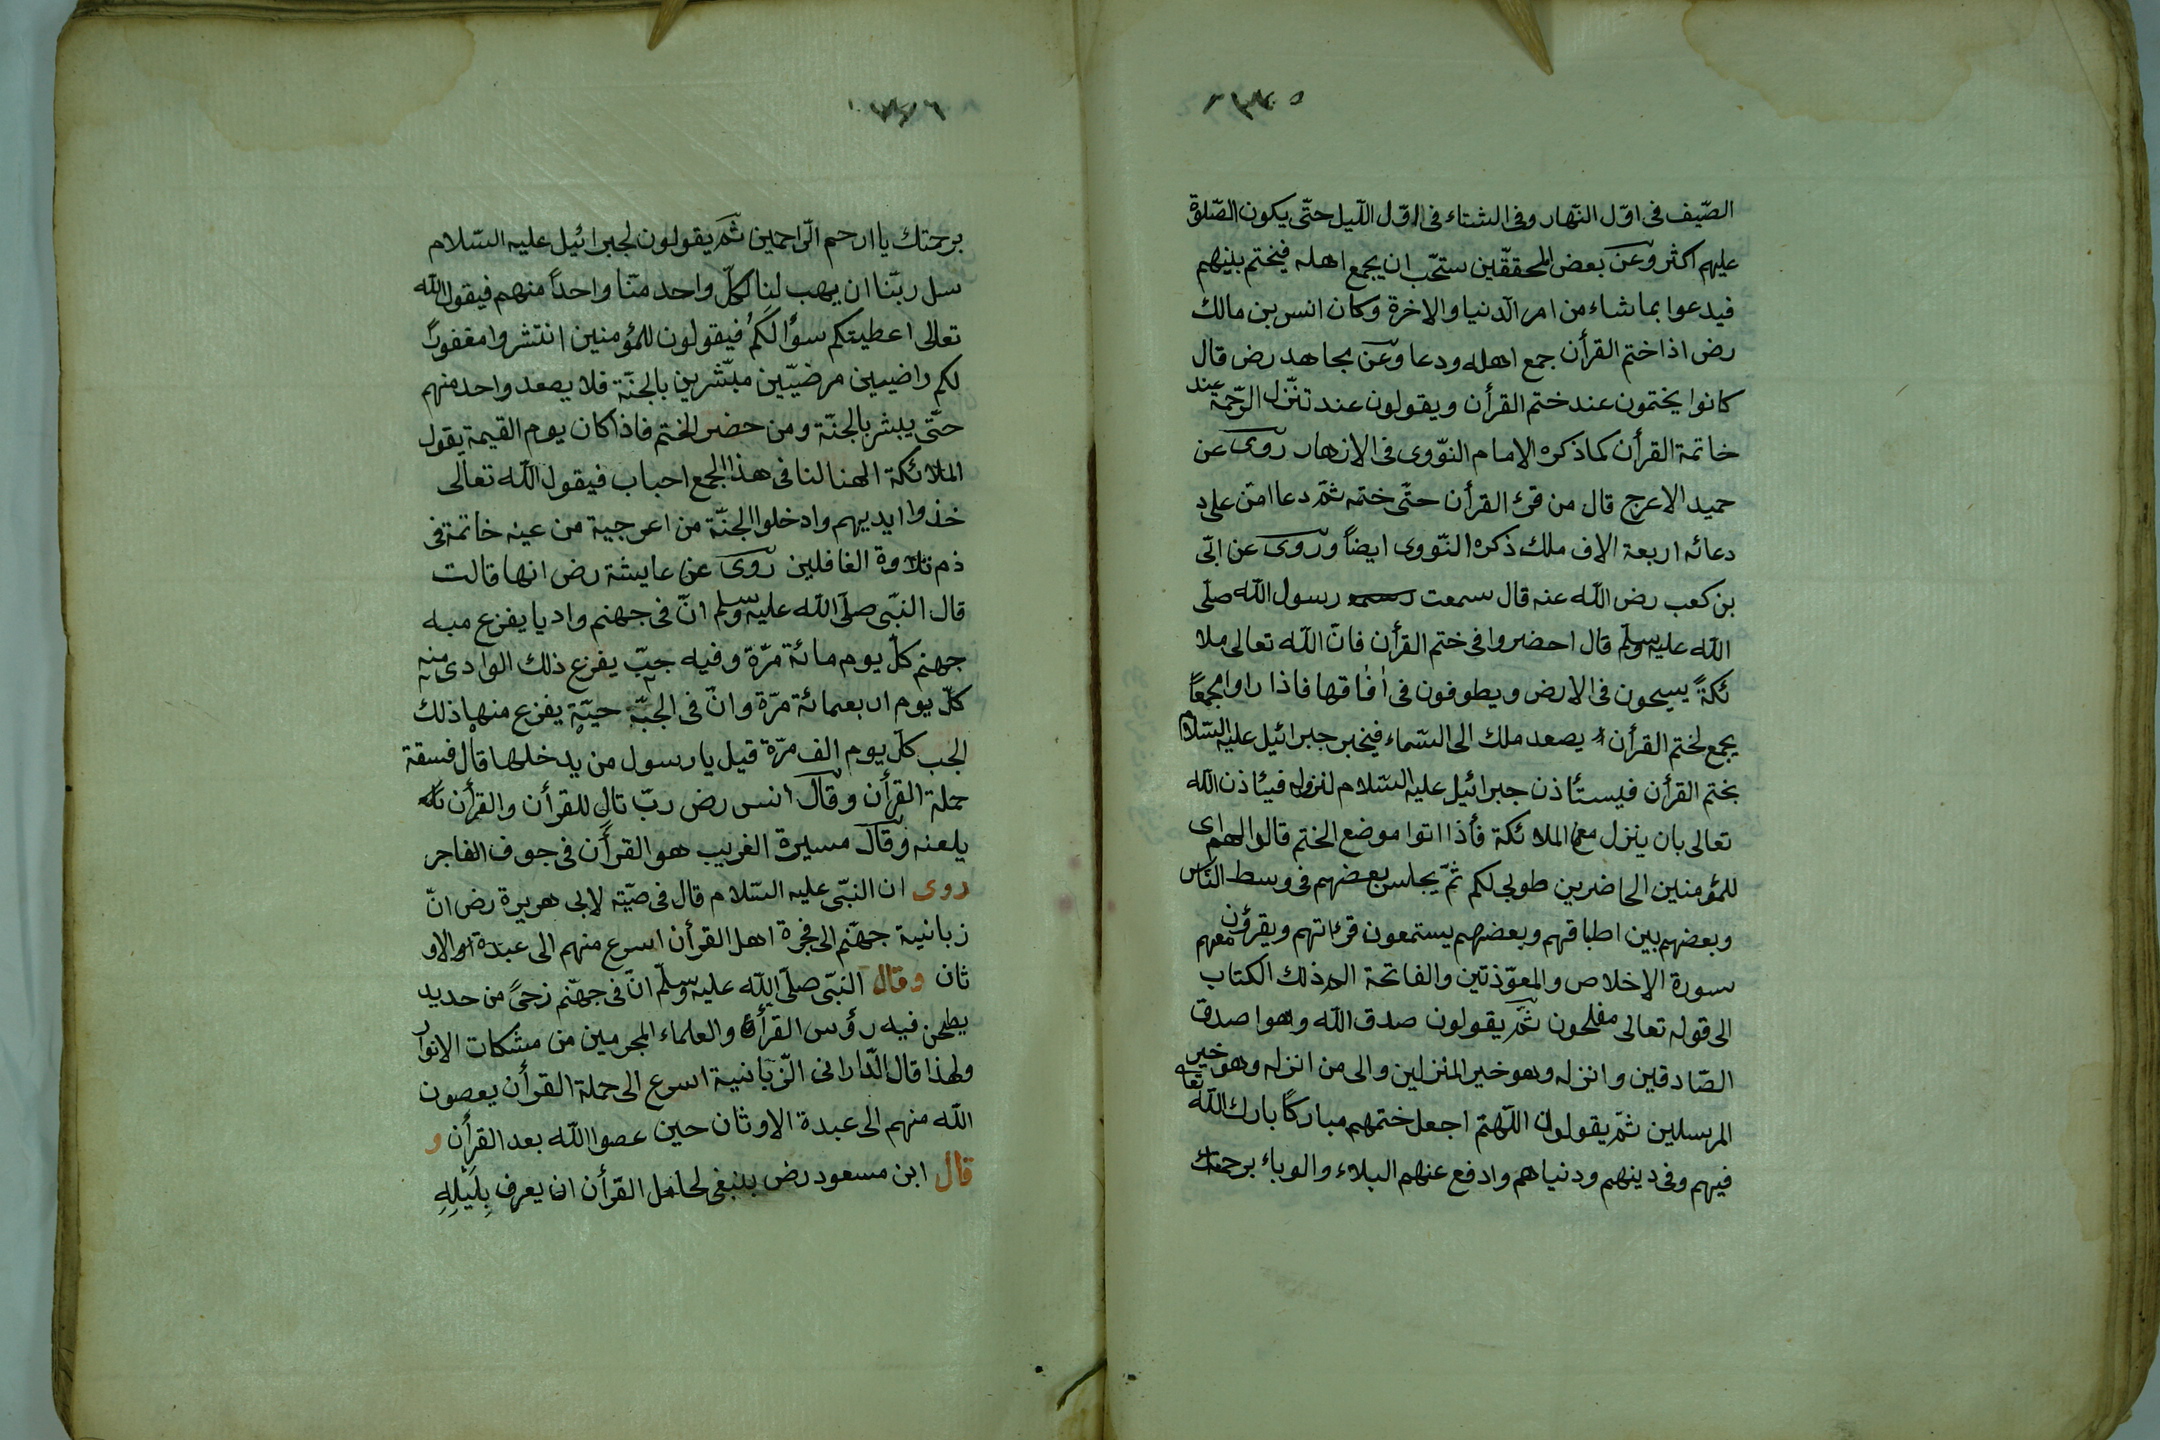 الصّيف فى اوّل النّهار وفى الشتاء فى اوّل اللّيل حتّى يكون الصّلوة
عليهم اكثر وعن بعض المحققّين ستحّب ان يجمع اهله فيختم بينهم
فيدعوا بما شاء من امر الدّنيا والاخرة وكان انس بن مالك
رض اذا ختم القرأن جمع اهله ودعا وعن مجاهد رض قال
كانوا يختمون عند ختم القرأن ويقولون عند تنزّل الرّحمة عند
خاتمة القرأن كما ذكره الامام النّووى فى الازهار روى عن
حميد الاعرج قال من قرئ القرأن حتّى ختمه ثمّ دعا امّن على د
دعائه اربعة الاف ملك ذكره النّووى ايضاً وروى عن ابّى
بن كعب رض اللّه عنه قال سمعت رسول اللّه صلّى
اللّه عليه وسلّم قال احضروا فى ختم القرأن فانّ اللّه تعالى ملا
ئكةً يسيحون فى الارض ويطوفون فى أفاقها فاذا راوا مجمعاً
يجمع لختم القرأن يصعد ملك الى السّماء فيخبر جبرائيل عليه السّلام
بختم القرأن فيستأذن جبرائيل عليه السّلام لنزوله فيئاذن اللّه
تعالى بان ينزل مع الملائكة فأذا اتوا موضع الختم قالوا لهم اى
للمؤمنين الحاضرين طوبى لكم ثمّ يجلس بعضهم فى وسط النّاس
وبعضهم بين اطباقهم وبعضهم يستمعون قرءاتهم ويقرؤن معهم
سورة الاخلاص والمعوّذتين والفاتحة الم ذلك الكتاب
الى قوله تعالى مفلحون ثمّ يقولون صدق اللّه وهو اصدق
الصّادقين وانزله وهو خير المنزلين والى من انزله وهو خير
المرسلين ثمّ يقولون اللّهمّ اجعل ختمهم مباركاً بارك اللّه تعا
فيهم وفى دينهم ودنياهم وادفع عنهم البلاء والوباء برحمتك
برحمتك يا ارحم الرّاحمين ثمّ يقولون لجبرائيل عليه السّلام
سل ربّنا ان يهب لنا لكلّ واحد منّا واحداً منهم فيقول اللّه
تعالى اعطيتكم سؤالكم فيقولون للمؤمنين انتشروا مغفوراً
لكم راضيين مرضيّين مبشّرين بالجنّة فلا يصعد واحد منهم
حتّى يبشر بالجنّة ومن حضر الختم فاذا كان يوم القيمة يقول
الملائكة الهنا لنا فى هذا الجمع احباب فيقول اللّه تعالى
خذوا ايديهم وادخلوا الجنّة من اعرجية من عينه خاتمة فى
ذم تلاوة الغافلين روى عن عايشة رض انها قالت
قال النبّى صلّى اللّه عليه وسلم انّ فى جهنم واديا يفزع مبه
جهنم كلّ يوم مائة مرّة وفيه جبّ يفزع ذلك الوادى منه
كلّ يوم اربعمائة مرّة وانّ فى الجبّ حيّة يفزع منها ذلك
الجب كلّ يوم الف مرّة قيل يا رسول من يدخلها قال فسقة
حملة القرأن وقال انس رض ربّ تالٍ للقرأن والقرأن
يلعنه وقال مسيرة الغريب هو القرأن فى جوف الفاجر
روى ان النبّى عليه السّلام قال فى صيّته لابى هريرة رض انّ
زبانية جهنّم الى فجرة اهل القرأن اسرع منهم الى عبدة الاو
ثان وقال النبّى صلّى اللّه عليه وسلّم انّ فى جهنّم زحىً من حديد
يطحن فيه رؤس القرأن والعلماء المجرمين من مشكات الانوار
ولهذا قال الدّارانى الزّبانية اسرع الى حملة القرأن يعصون
اللّه منهم الى عبدة الاوثان حين عصوا اللّه بعد القرأن و
قال ابن مسعود رض ينبغى لحامل القرأن ان يعرف بِلَيْلِهِ